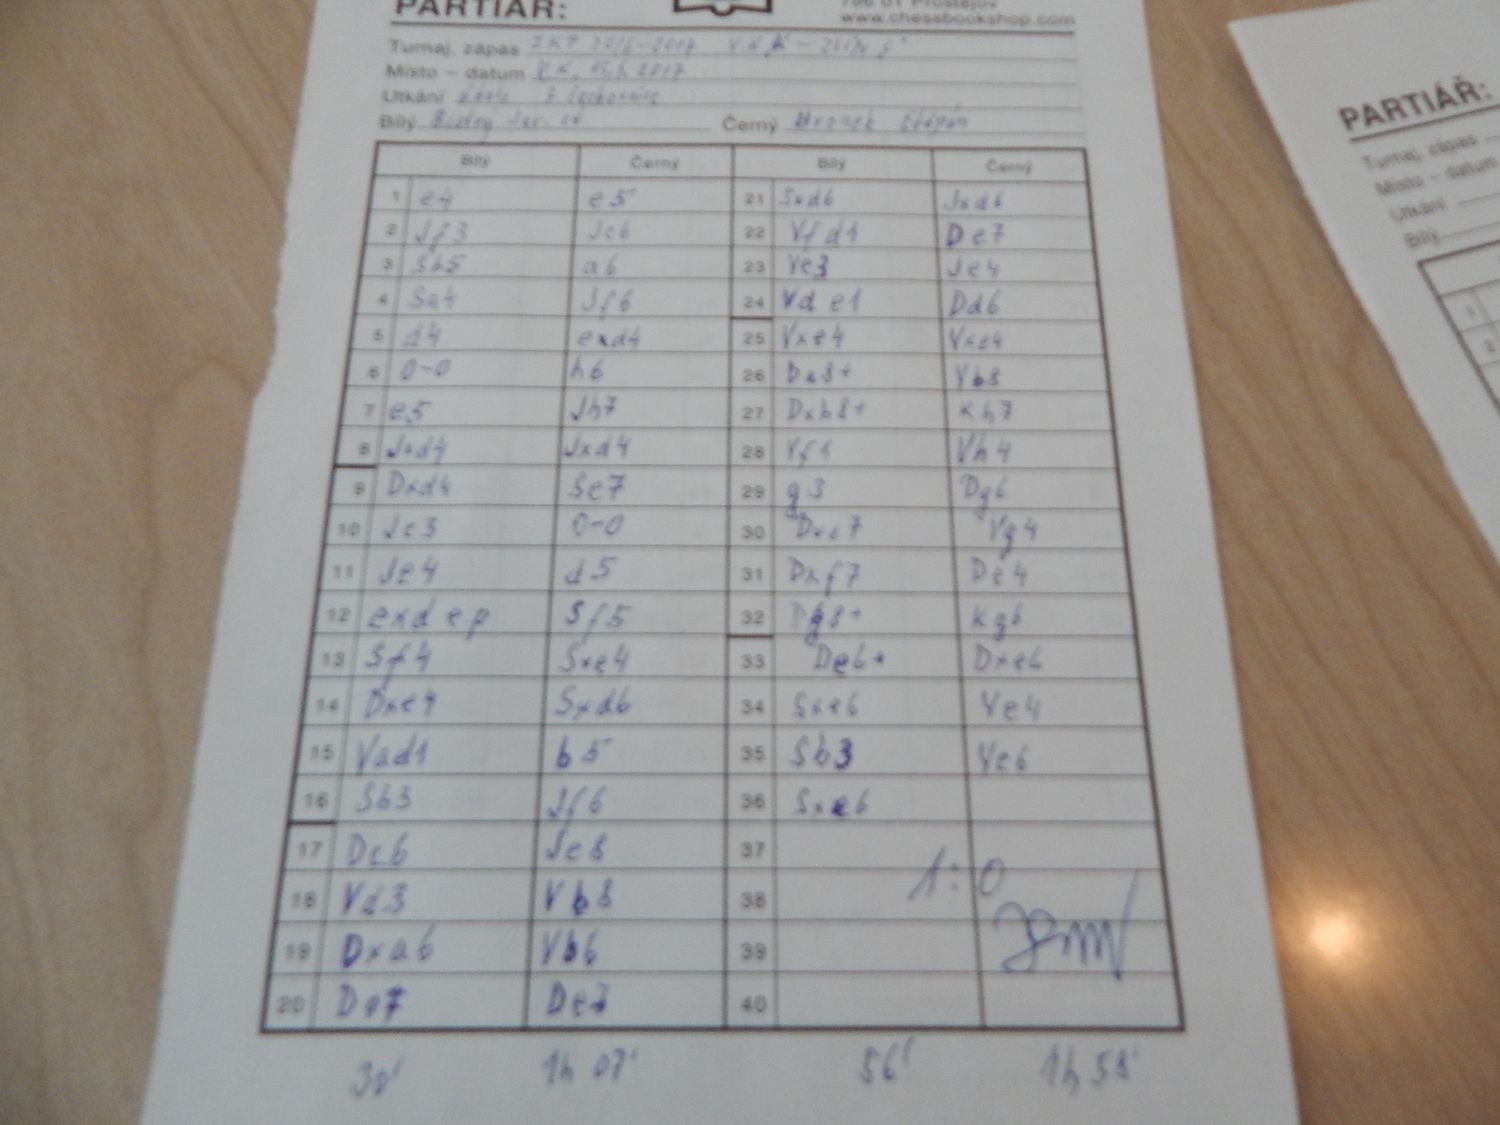 PARTIÁŘ:
796 01 Prostějov
www.chessbookshop.com
Turnaj, zápas
Místo – datum 2017
Utkání
Bílý Černý
Bílý Černý Bílý Černý
1 e4 e5 21 Sxd6 Jxd6
2 Jf3 Jc6 22 Vfd1 De7
3 Sb5 a6 23 Ve3 Je4
4 Sa4 Jf6 24 Vde1 Dd6
5 d4 exd4 25 Vxe4 Vxe4
6 0-0 h6 26 Da8+ Vb8
7 e5 Jh7 27 Dxb8+ Kh7
8 Jxd4 Jxd4 28 Vf1 Vh4
9 Dxd4 Se7 29 g3 Dg6
10 Jc3 0-0 30 Dxc7 Vg4
11 Je4 d5 31 Dxf7 De4
12 exd e.p Sf5 32 Dg8+ Kg6
13 Sf4 Sxe4 33 De6+ Dxe6
14 Dxe4 Sxd6 34 Sxe6 Ve4
15 Vad1 b5 35 Sb3 Ve6
16 Sb3 Jf6 36 Sxe6
17 Dc6 Je8 37
18 Vd3 Vb8 38
19 Dxa6 Vb6 39
20 Da7 De7 40
1:0
30' 1h 07' 56' 1h 58'
PARTIÁŘ:
Turnaj, zápas
Místo – datum
Utkání
Bílý
1
2